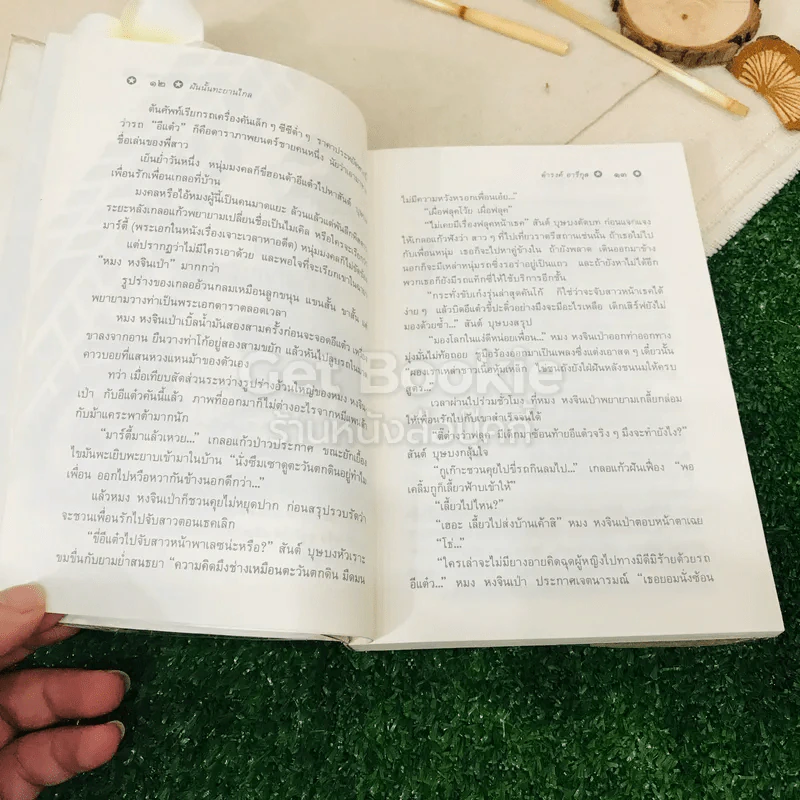 ๑๒ ฝันนั้นทะยานไกล
ต้นศัพท์เรียกรถเครื่องคันเล็ก ๆ ซีซีต่ำ ๆ ราคาประหยัด
ว่ารถ "อีแต๋ว" ก็คือดาราภาพยนตร์ชายคนหนึ่ง
ชื่อเล่นของพี่สาว
เย็นย่ำวันหนึ่ง หนุ่มมงคลก็ขี่ฮอนด้าอีแต๋วไปหาสันต์
เพื่อนรักเพื่อเกลอที่บ้าน
มงคลหรือไอ้หมงผู้นี้เป็นคนมาดแยะ ล้วนแล้วแต่
ระยะหลังเกลอแก้วพยายามเปลี่ยนชื่อเป็นไมเคิล หรือใครจะเรียก
มาร์ตี้ (พระเอกในหนังเรื่องเจาะเวลาหาอดีต) หนุ่มมงคลก็ไม่
แต่ปรากฏว่าไม่มีใครเอาด้วย และพอใจที่จะเรียกเขาใน
"หมง หงจินเป่า" มากกว่า
รูปร่างของเกลออ้วนกลมเหมือนลูกขนุน แขนสั้น ขาสั้น
พยายามวางท่าเป็นพระเอกดาราตลอดเวลา
หมง หงจินเป่าเบิ้ลน้ำมันสองสามครั้งก่อนจะจอดอีแต๋ว
ขาลงจากอาน ยืนวางท่าโก้อยู่สองสามขยัก แล้วหันไปลูบรถ
คาวบอยที่แสนหวงแหนม้าของตัวเอง
ทว่า เมื่อเทียบสัดส่วนระหว่างรูปร่างอ้วนใหญ่ของหมง หงจิน
เป่า กับอีแต๋วคันนี้แล้ว ภาพที่ออกมาก็ไม่ต่างอะไรจากหมี
กับม้าแคระพาต้ามากนัก
"มาร์ตี้มาแล้วเหวย..." เกลอแก้วป่าวประกาศ ขณะยัก
ไขมันพะเยิบพะยาบเข้ามาในบ้าน "นั่งซึมเซาดูตะวันตกดินอยู่ทำไม
เพื่อน ออกไปหวือหวากันข้างนอกดีกว่า..."
แล้วหมง หงจินเป่าก็ชวนคุยไม่หยุดปาก ก่อนสรุปรวบรัดว่า
จะชวนเพื่อนรักไปจับสาวตอนเธคเลิก
"ขี่อีแต๋วไปจับสาวหน้าพาเลซน่ะหรือ?" สันต์ บุษบงหัวเราะ
ขมขื่นกับยามย่ำสนธยา "ความคิดมึงช่างเหมือนตะวันตกดิน มืดมน
ดำรงค์ อารีกุล ๑๓
ไม่มีความหวังหรอกเพื่อนเอ๋ย..."
"เผื่อฟลุคโว้ย เผื่อฟลุค"
"ไม่เคยมีเรื่องฟลุคหน้าเธค" สันต์ บุษบงดัดบท ก่อนแจกแจง
ให้เกลอแก้วฟังว่า สาว ๆ ที่ไปเที่ยวราตรีสถานเช่นนั้น ถ้าเธอไม่ไป
กับเพื่อนหนุ่ม เธอก็จะไปหาคู่ข้างใน ถ้ายังพลาด เดินออกมาข้าง
นอกก็จะมีเหล่าหนุ่มรถซิ่งรอร่าอยู่เป็นแถว และถ้ายังหาไม่ได้อีก
พวกเธอก็ยังมีรถแท็กซี่ให้ใช้บริการอีกชั้น
"กระทั่งขับเก๋งรุ่นล่าสุดคันโก้ ก็ใช่ว่าจะจับสาวหน้าเธคได้
ง่าย ๆ แล้วบิดอีแต๋วขี้ปะติ๋วอย่างมึงจะมีอะไรเหลือ เด็กเสิร์ฟยังไม่
มองด้วยซ้ำ..." สันต์ บุษบงสรุป
"มองโลกในแง่ดีหน่อยเพื่อน..." หมง หงจินเป่าออกท่าออกทาง
มุ่งมั่นไม่ท้อถอย
เวลาผ่านไปร่วมชั่วโมง ที่หมง หงจินเป่าพยายามเกลี้ยกล่อม
ให้เพื่อนรักไปกับเขาสำเร็จจนได้
"ตี๋ต่างว่าฟลุค มีเด็กมาซ้อนท้ายอีแต๋วจริง ๆ มึงจะทำยังไง?"
สันต์ บุษบงกลุ้มใจ
"กูเก๊าะชวนคุยไปขี่รถกินลมไป..." เกลอแก้วฝันเฟื่อง "พอ
เคลิ้มกูก็เลี้ยวฟ้าบเข้าให้"
"เลี้ยวไปไหน?"
"เฮอะ เลี้ยวไปส่งบ้านเค้าสิ" หมง หงจินเป่าตอบหน้าตาเฉย
"โธ่..."
"ใครเล่าจะไม่มียางอายคิดฉุดผู้หญิงไปทางมิดีมิร้ายด้วยรถ
อีแต๋ว..." หมง หงจินเป่า ประกาศเจตนารมณ์ "เธอยอมนั่งซ้อน
Get Bookie
ร้านหนังสือเก็ท